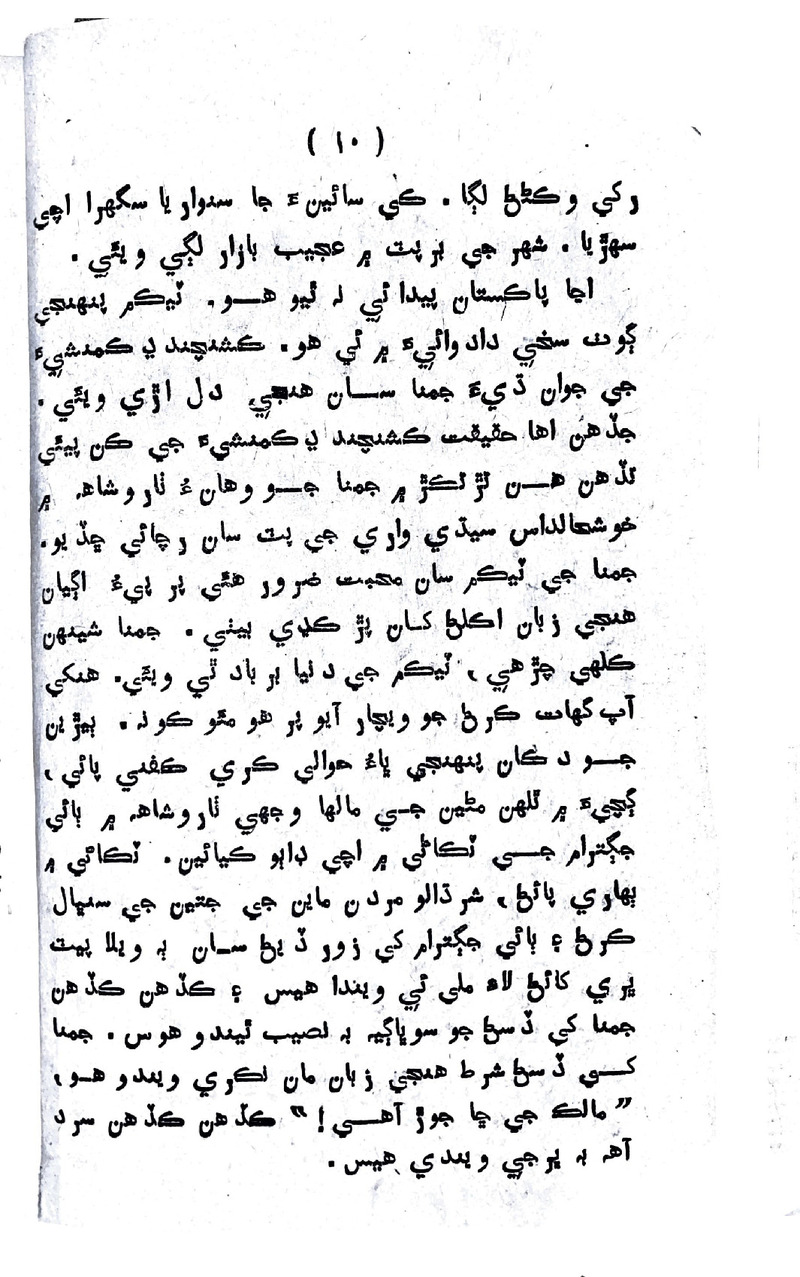 ( ۱۰ )
رکي وڪڻڻ لڳا. ڪي سائينءَ جا سنوار يا سگهرا اچي
سهڙيا. شهر جي ٻر پٽ ۾ عجيب بازار لڳي ويئي.
اڃا پاڪستان پيدا ئي نہ ٿيو هو. ٽيڪم پنهنجي
ڳوٺ سخي داد واڻيءَ ۾ ئي هو. ڪشنچند ۽ ڪمنشيءَ
جي جوان ڌيءَ جمنا سان هنجي دل اڙي ويئي.
جڏهن اها حقيقت ڪشنچند ۽ ڪمنشيءَ جي ڪن پيئي
تڏهن هن تڙ تڪڙ ۾ جمنا جو وهان ٺاروشاهہ ۾
خوشحالداس سيڌي واري جي پٽ سان رچائي ڇڏيو.
جمنا جي ٽيڪم سان محبت ضرور هئي پر پيءُ اڳيان
هنجي زبان اڪلڻ کان پڙ ڪڍي بيٺي. جمنا شينهن
ڪلهي چڙهي، ٽيڪم جي دنيا برباد ٿي ويئي. هنکي
آپ گهات ڪرڻ جو ويچار آيو پر هو مئو ڪونہ. ٻيڙين
جو دڪان پنهنجي ڀاءُ حوالي ڪري ڪفني پائي،
ڳچيءَ ۾ ٿلهن مڻين جي مالها وجهي ٺاروشاهہ ۾ ٻائي
جڳترام جي ٽڪاڻي ۾ اچي داٻو ڪيائين. ٽڪاڻي ۾
ٻهاري پائڻ، شرڌالو مردن ماين جي جتين جي سنڀال
ڪرڻ ۽ ٻائي جڳترام کي زور ڏيڻ سان ٻہ ويلا پيٽ
ڀري کائڻ لاءِ ملي ئي ويندا هيس ۽ ڪڏهن ڪڏهن
جمنا کي ڏسڻ جو سوڀاڳيہ بہ نصيب ٿيندو هوس. جمنا
کي ڏسڻ شرط هنجي زبان مان نڪري ويندو هو،
”مالڪ جي ڇا جوڙ آهي!“ ڪڏهن ڪڏهن سرد
آهہ بہ ڀرجي ويندي هيس.